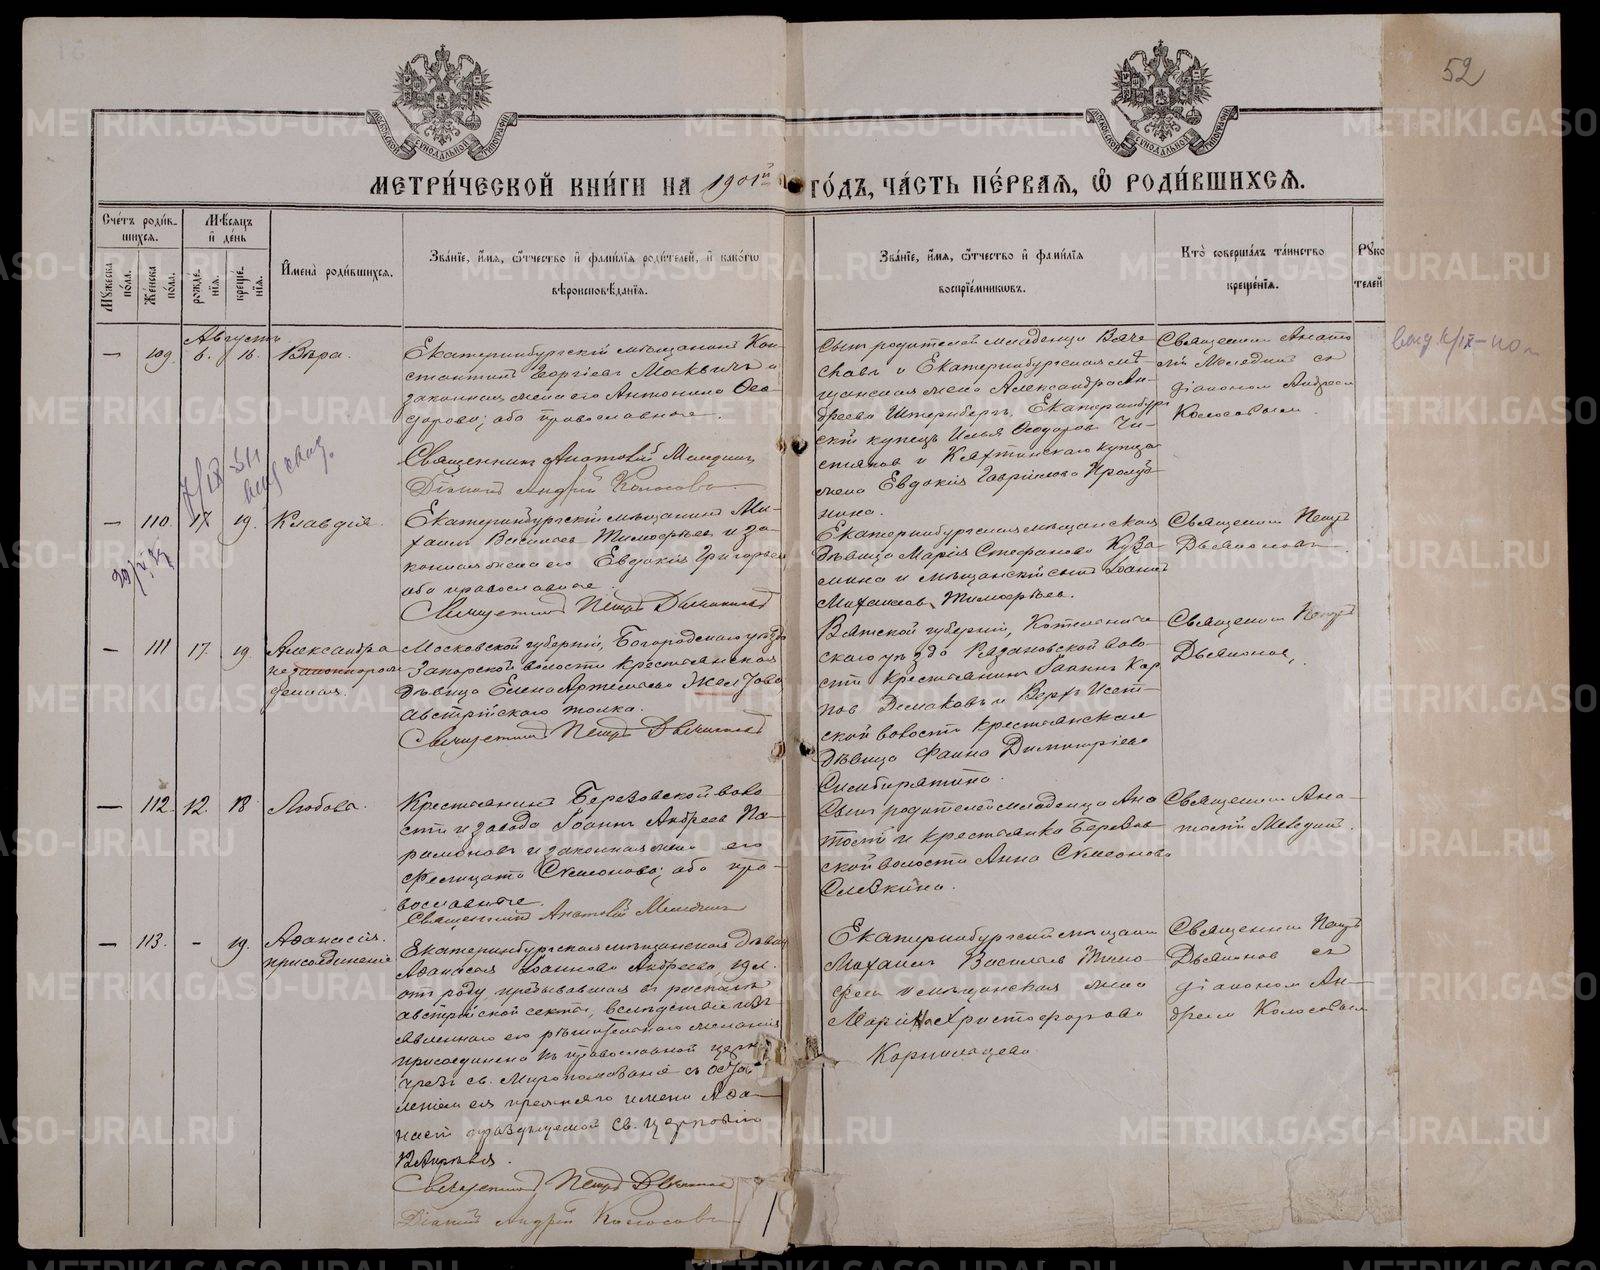 52
МЕТРИ́ЧЕСКОЙ КНИ́ГИ НА 1901й ГО́ДЪ, ЧА́СТЬ ПЕ́РВАЯ, Ѡ РОДИ́ВШИХСЯ.
Сче́тъ роди́в-
шихся.
Мꙋжеска пола.
Же́нска пола.
Мѣсяцъ
и҆ де́нь
рожде́нїя.
креще́нїя.
И҆мена̀ роди́вшихся.
Зва́нїе, и҆́мя, ѻ҆́тчество и҆ фами́лїя роди́телей, и҆ како́гѡ
вѣроисповѣ́данїя.
Зва́нїе, и҆́мя, ѻ҆́тчество и҆ фами́лїя
воспрїе́мникѡвъ.
Кто̀ соверша́лъ та́инство
креще́нїя.
Рꙋко
телей
Августъ
— 109. 6. 16. Вѣра.
Екатеринбургскій мѣщанинъ Кон-
стантинъ Георгіевъ Москвичъ и
законная жена его Антонина Ѳео-
дорова; оба православные.
Священникъ Анатолій Меледин
Діаконъ Андрей Колосовъ.
Сынъ родителей младенца Вяче-
славъ и Екатеринбургская мѣ-
щанская жена Александра Ан-
дреева Штернбергъ, Екатеринбург
скій купецъ Илья Ѳеодоров Чи-
стяков и Кяхтинскаго купца
жена Евдокія Гаврилова
нина.
Священник Анато
лій Меледин съ
діаконом Андреем
Колосовым.
— 110. 17 19. Клавдія.
Екатеринбургскій мѣщанинъ Ми-
хаилъ Васильев Тимофѣев и за-
конная жена его Евдокія Григорьева
оба православные.
Священникъ Петръ Дьяконов
Екатеринбургская мѣщанская
дѣвица Марія Стефанова Кузь
мина и мѣщанскій сынъ Іоаннъ
Михаилов Тимофѣев.
Священник Петръ
Дьяконовъ.
— 111 17. 19. Александра
незаконнорож
денная.
Московской губерніи, Богородскаго уѣзда
Запорской волости крестьянская
дѣвица Елена Артемьева Желтова
австрійскаго толка.
Священникъ Петръ Дьяконов
Вятской губерніи, Котельнич
скаго уѣзда Казаковской воло-
сти крестьянинъ Іоаннъ Кар
пов Демаковъ и Верх-Исет-
ской волости крестьянская
дѣвица Фаина Димитріева
Симбирятина.
Священник Петръ
Дьяконов.
— 112. 12. 18 Любовь.
Крестьянинъ Березовской воло-
сти и завода Іоаннъ Андреев Па-
рамоновъ и законная жена его
Фелицата Симеонова; оба пра-
вославные.
Священникъ Анатолій Меледин
Сынъ родителей младенца Ана
толій и крестьянка Березов-
ской волости Анна Симеонова
Слезкина.
Священник Ана-
толій Меледин.
— 113. - 19. Аѳанасія.
присоединеніе
Екатеринбургская мѣщанская дѣвица
Аѳанасія Іоаннова Андреева, 19 л.
отъ роду, пребывавшая въ расколѣ
австрійской секты, вслѣдствіе изъ-
явленнаго ею рѣшительнаго желанія
присоединена къ православной церкви
чрезъ св. Миропомазаніе съ остав-
леніем ея прежняго имени Аѳа-
насіи празднуемой Св. церковію
12 Апрѣля.
Священникъ Петръ Дьяконов
Діаконъ Андрей Колосовъ
Екатеринбургскій мѣщанин
Михаилъ Васильев Тимо-
феев и мѣщанская жена
Марія Христофорова
Кормильцева.
Священник Петръ
Дьяконов съ
діаконом Ан-
дреем Колосовым